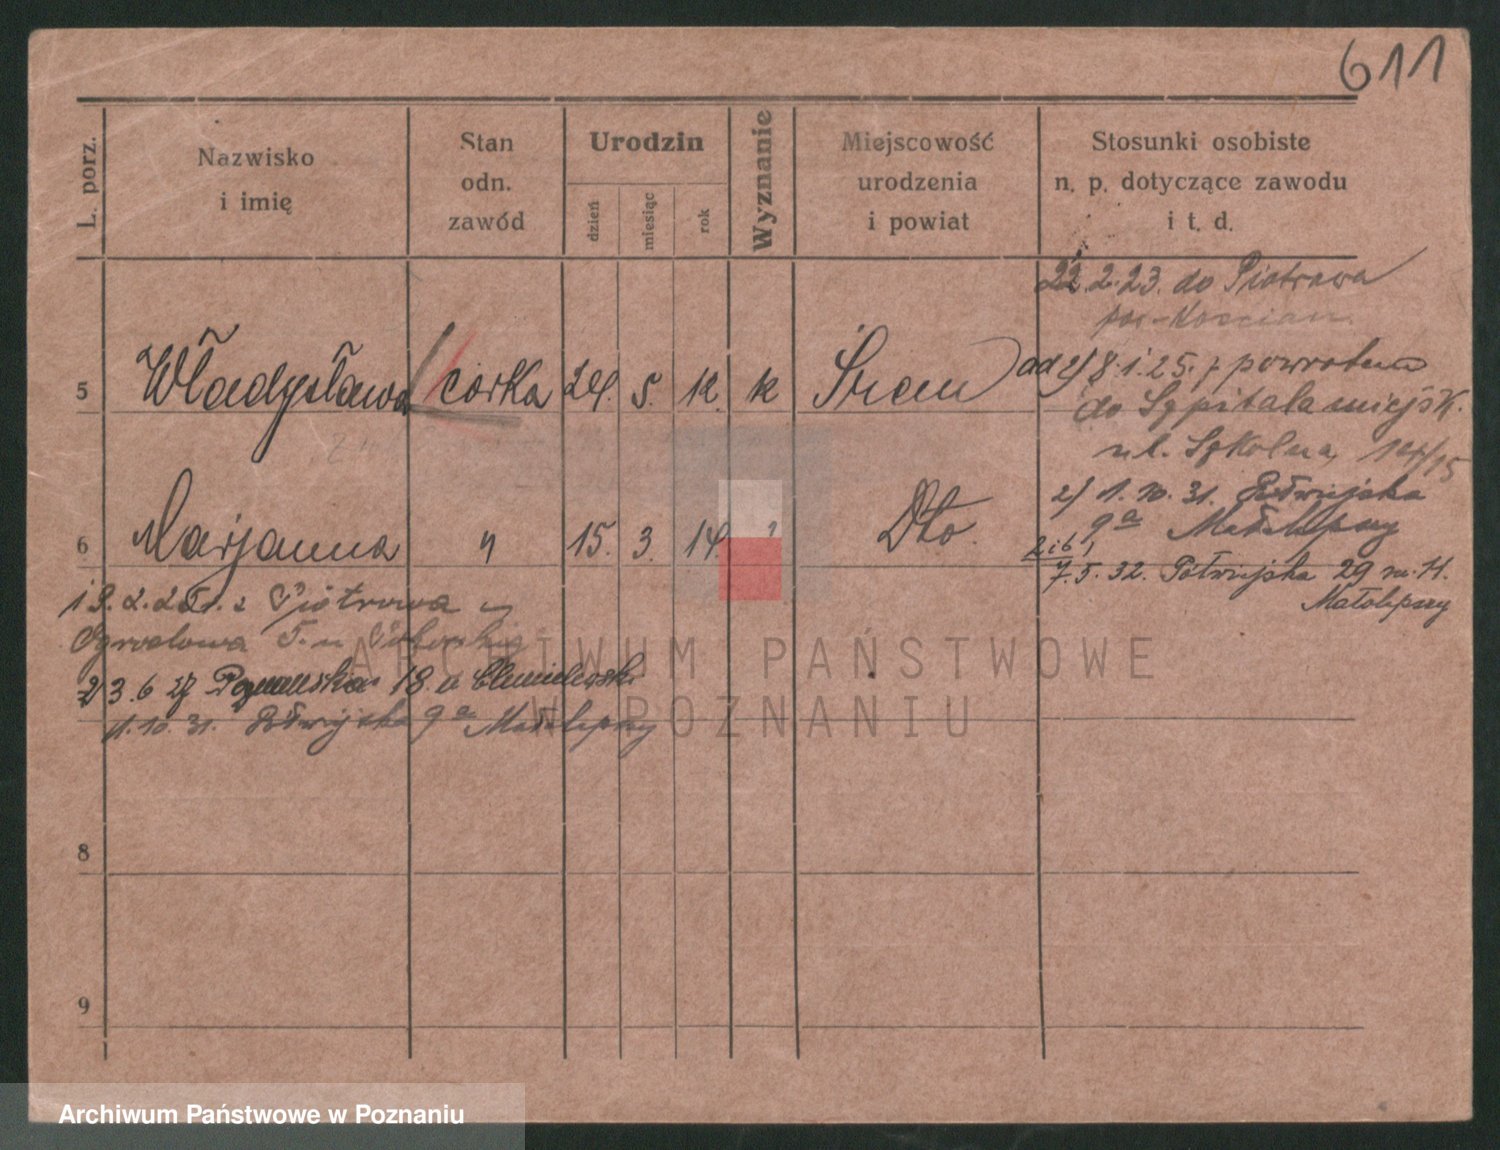 611
L. porz.
Nazwisko
i imię
Stan
odn.
zawód
Urodzin
dzień
miesiąc
rok
Wyznanie
Miejscowość
urodzenia
i powiat
Stosunki osobiste
n. p. dotyczące zawodu
i t. d.
22. 2. 23. do Piotrowa
pow. Kościan
5 Władysława córka 24. 5. 12. k Śrem
ad 2/ 8. 1. 25. z powrotem
do Szpitala miejsk.
ul. Szkolna, 14/15
2/ 1. 10. 31. Półwiejska
9a Małolepszy
6 Marjanna " 15. 3. 14. " Dto.
2 i 6/
7. 5. 32. Półwiejska 29 m. 11.
Małolepszy
z Piotrowa
Ogrodowa 5. u
23. 6. 27 Poznańska 18. u Chmielewski
1. 10. 31. Półwiejska 9a Małolepszy
8
9
ARCHIWUM PAŃSTWOWE
W POZNANIU
Archiwum Państwowe w Poznaniu